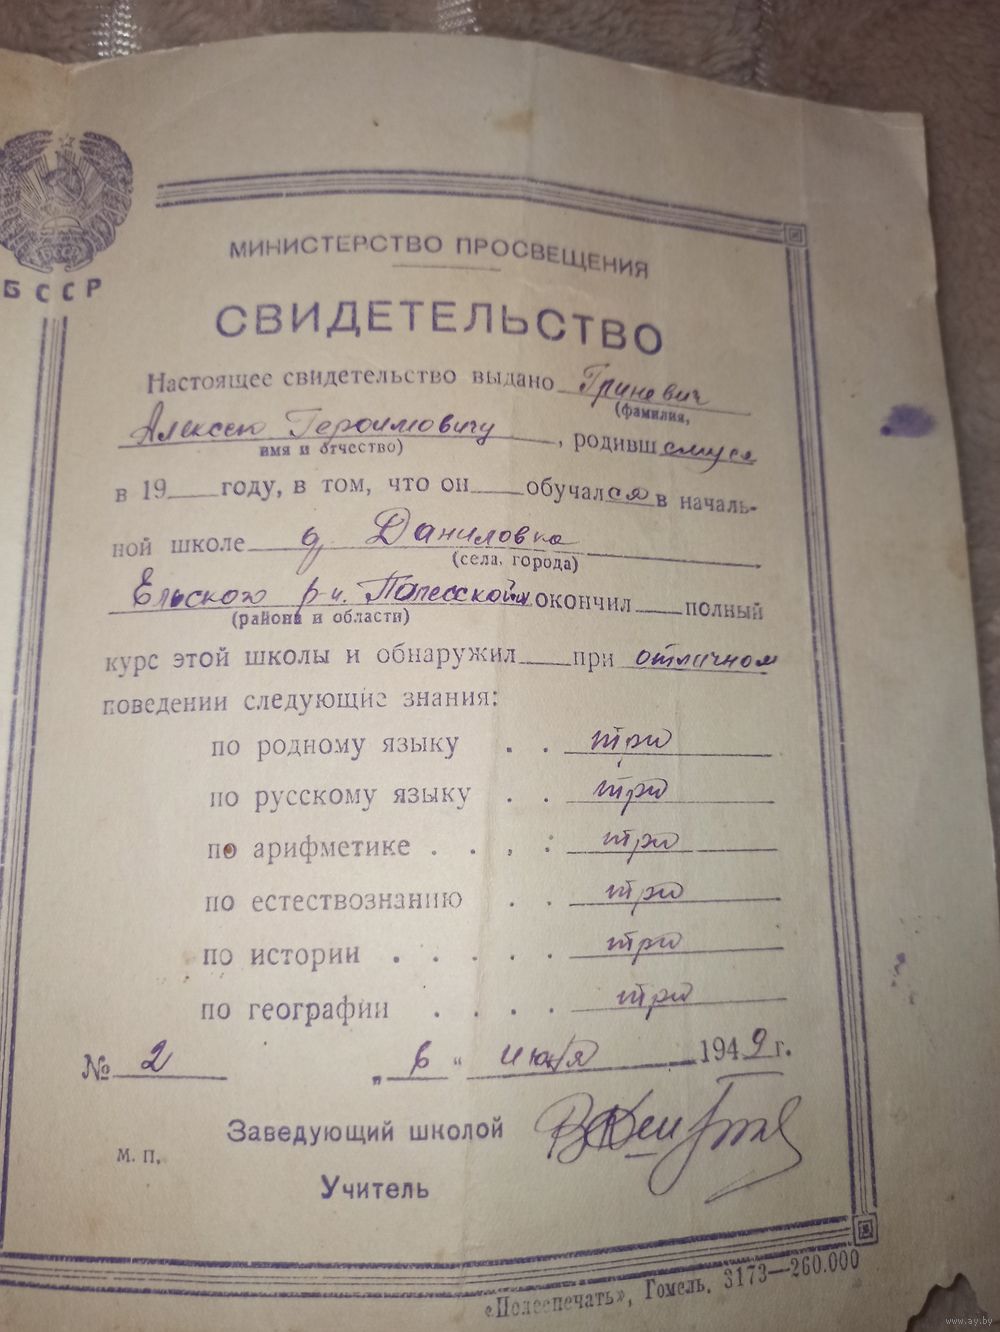 БССР
МИНИСТЕРСТВО ПРОСВЕЩЕНИЯ
СВИДЕТЕЛЬСТВО
Настоящее свидетельство выдано Гриневич
(фамилия,
Алексею Героимовичу, родившемуся
имя и отчество)
в 19 году, в том, что он обучался в началь-
ной школе д Даниловка
(села, города)
Ельского р-н. Полесской окончил полный
(района и области)
курс этой школы и обнаружил при отличном
поведении следующие знания:
по родному языку . . три
по русскому языку . . три
по арифметике . . , : три
по естествознанию . . три
по истории . . . . . три
по географии . . . . три
№ 2 „ 6 " июня 1949 г.
Заведующий школой
М. П.
Учитель
«Полеспечать», Гомель, 3173—260.000
www.ay.by